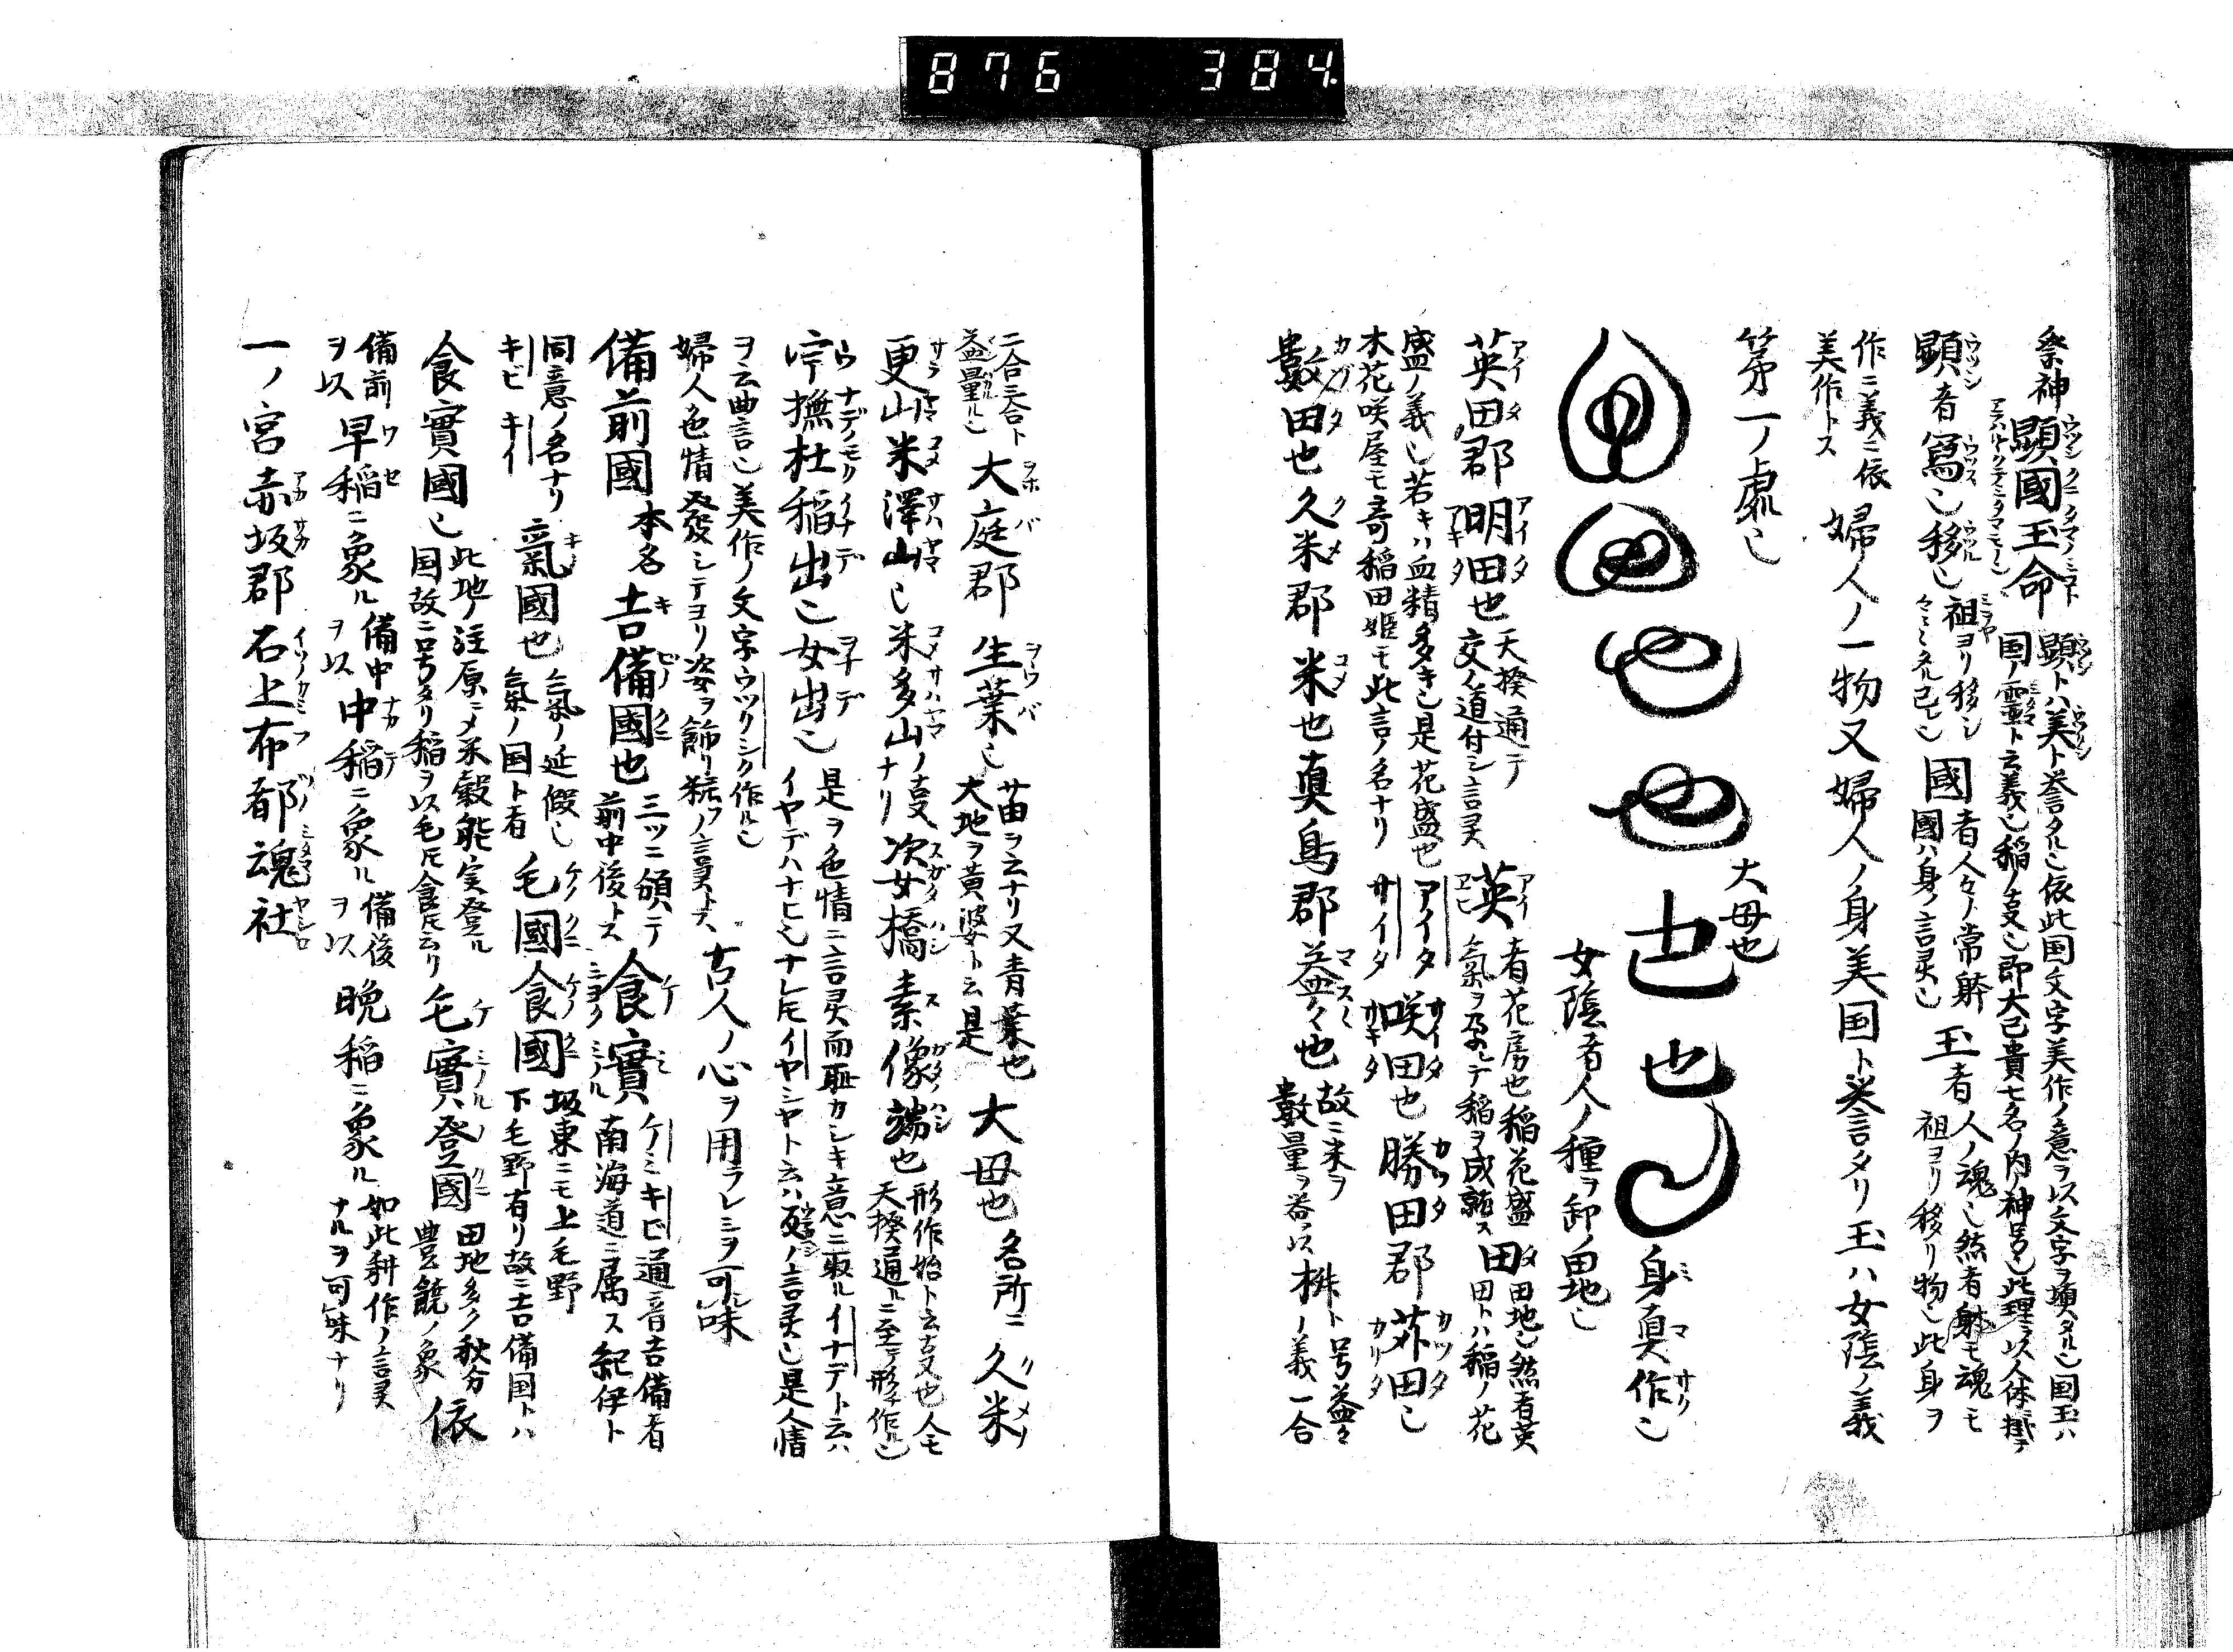 876 384.
祭神 顕國玉命 顕トハ美ト誉タル也依此国文字美作ノ意ヲ以文字ヲ填タル也国玉ハ
国ノ霊ト云義也稲ノ叓也即大己貴七名ノ内ノ神号也此理ヲ以人体ニ
顕者寫也移也 祖ヨリ移也 國 者人々ノ常躰 國ハ身ノ言灵也 玉者 人ノ魂也然者躰モ魂モ 祖ヨリ移リ物也此身ヲ
作ニ義ニ依 美作トス 婦人ノ一物又婦人ノ身美国ト誉言タリ玉ハ女陰ノ義
第一ノ處也
大母也
也 也 身真作也
女陰者人ノ種ヲ卸ノ田地也
英田郡 明田也 天揆通テ 交ノ道付シ言灵 英 者花房也稲花盛 氣ヲ孕シテ稲ヲ成熟ス 田 田地也然者英 田トハ稲ノ花
盛ノ義也若キハ血精多キ也是花盛也
木花咲屋モ奇稲田姫モ此言ノ名ナリ アイタ サイタ 咲田也 勝田郡 苅田也
數田也久米郡 米也真島郡 益々也 故ニ米ヲ 數量ヲ 以 桝ト号益々 ノ義一合
二合三合ト 益量ル也 大庭郡 生葉也 苗ヲ云ナリ又青葉也 大地ヲ黄婆ト云是 大母也 名所ニ 久米
更山米澤山也米多山ノ叓ナリ 次女橋 素像端也 形作始ト云叓也人モ 天揆通ルニ至テ形チ作ル也
宇撫杜稲出也女出也 是ヲ色情ニ言灵而耻カシキ意ニ取ルイナデト云ハ イヤデハナヒ也ナレ𪜈イヤシヤト云ハ死ノ言灵也是人情
ヲ云曲言也美作ノ文字ウツクシク作ル也
婦人色情發シテヨリ姿ヲ飾リ粧フノ言灵トス 古人ノ心ヲ用ラレシヲ可味
備前國 本名 吉備國也 三ツニ頒テ 前中後トス 食實 ケミキビ通音吉備者 南海道ニ属ス紀伊ト
同意ノ名ナリ キビ キイ 氣國也 氣ノ延假也 氣ノ国ト者 毛國食國 坂東ニモ上毛野 下毛野有リ故ニ吉備国トハ
食實國也 此地ノ注原ニメ米穀能実登ル 国故ニ号タリ稲ヲ以毛𪜈食𪜈云リ 毛實登國 田地多ク秋分 豊饒ノ象 依
備前 ヲ以 早稲ニ象ル 備中 ヲ以 中稲ニ象ル 備後 ヲ以 晩稲ニ象ル 如此耕作ノ言灵 ナルヲ可味ナリ
一ノ宮赤坂郡石上布都魂社